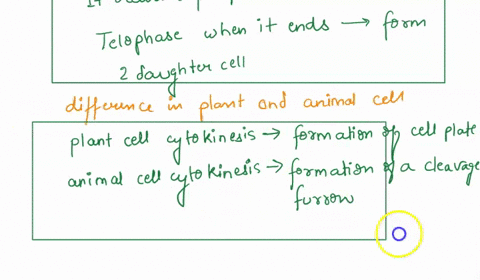 Telophase when it ends → form
2 daughter cell
difference in plant and animal cell
plant cell cytokinesis → formation of cell plate
animal cell cytokinesis → formation of a cleavage
furrow